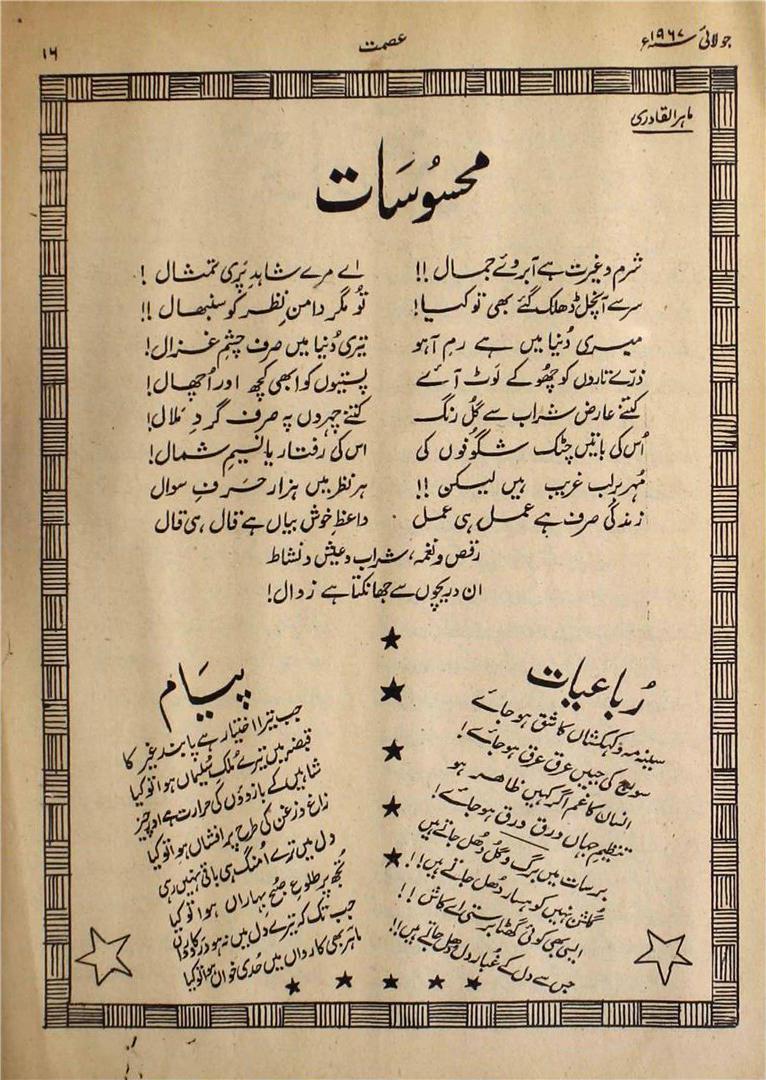 جولائی ۱۹۶۷ء
عصمت
۱۶
ماہرالقادری
محسُوسَات
شرم و غیرت ہے آبروئے جمال !! اے مرے شاہدِ پَری تمثال !
سر سے آنچل ڈھلک گئے بھی تو کیا! تُو مگر دامنِ نظر کو سنبھال !!
میری دُنیا میں ہے رمِ آہو تیری دُنیا میں صرف چشمِ غزال!
ذرّے تاروں کو چھُو کے لَوٹ آئے پستیوں کو ابھی کچھ اور اُچھال!
کتنے عارض شراب سے گُل رنگ کتنے چہروں پہ صرف گردِ مَلال!
اُس کی باتیں چٹک شگوفوں کی اس کی رفتار یا نسیمِ شمال!
مُہر بر لب غریب ہیں لیکن !! ہر نظر میں ہزار حَرفِ سوال
زندگی صرف ہے عمل ہی عمل واعظِ خوش بیاں ہے قال ہی قال
رقص و نغمہ، شراب و عیش و نشاط
ان دریچوں سے جھانکتا ہے زوال!
رُباعیات
سینہ مہ و کہکشاں کا شق ہو جائے
سورج کی جبیں عرق عرق ہو جائے!
انسان کا غم اگر کہیں ظاہر ہو
تنظیمِ جہاں ورق ورق ہو جائے!
برسات میں برگ و گُل دُھل جاتے ہیں
گلشن نہیں کوہسار دُھل جاتے ہیں!!
ایسی بھی کوئی گھٹا برستی اے کاش !!
جس سے دل کے غُبار دُھل جاتے ہیں!!
پیَام
جب تیرا اختیار ہے پابندِ غیر کا
قبضہ میں تیرے مُلکِ سُلیماں ہوا تو کیا
شاہیں کے بازوؤں کی حرارت ہے اور چیز
زاغ و زغن کی طرح پر افشاں ہوا تو کیا
دل میں ترے اُمنگ ہی باقی نہیں رہی
تُجھ پر طلوعِ صبحِ بہاراں ہوا تو کیا
جب تک کہ تیرے دل میں نہ ہو دردِ کارواں
ماہر بھی کارواں میں حُدی خواں ہوا تو کیا